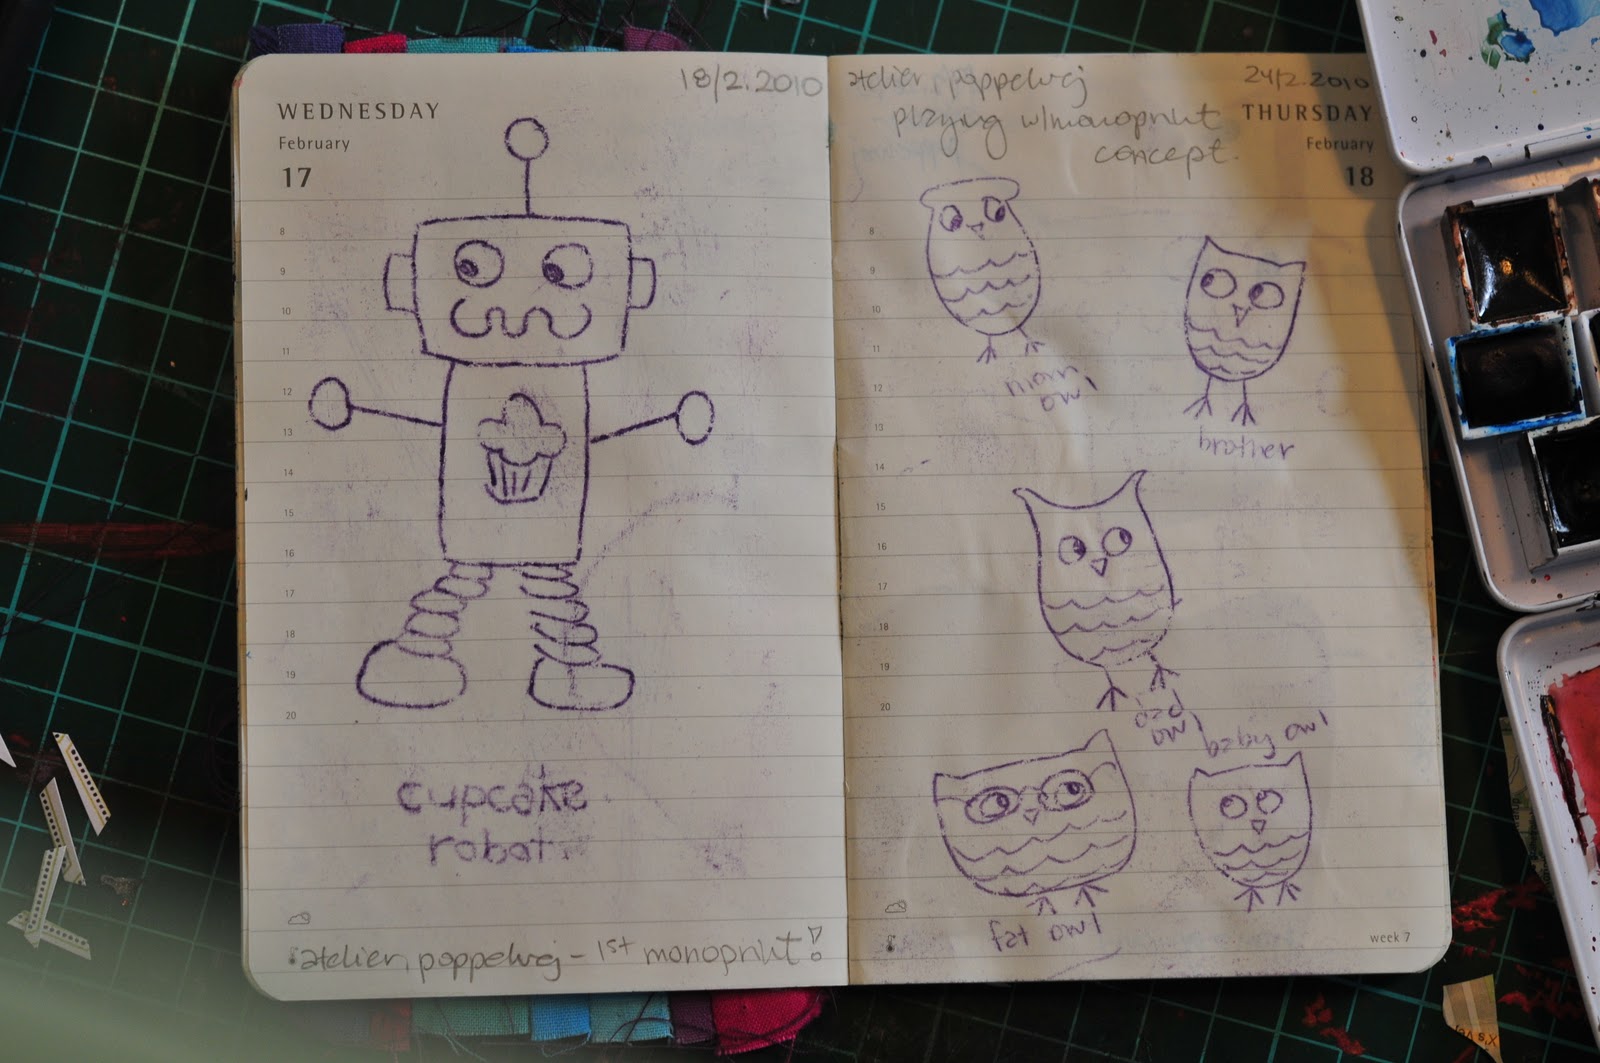 18/2.2010
WEDNESDAY
February
17
8
9
10
11
12
13
14
15
16
17
18
19
20
cupcake
robot.
atelier, poppelvej - 1st monoprint!
atelier, poppelvej
24/2.2010
playing w/monoprint
concept.
THURSDAY
February
18
8
9
10
11
12
13
14
15
16
17
18
19
20
mom
owl
brother
dad
owl
baby owl
fat owl
week 7